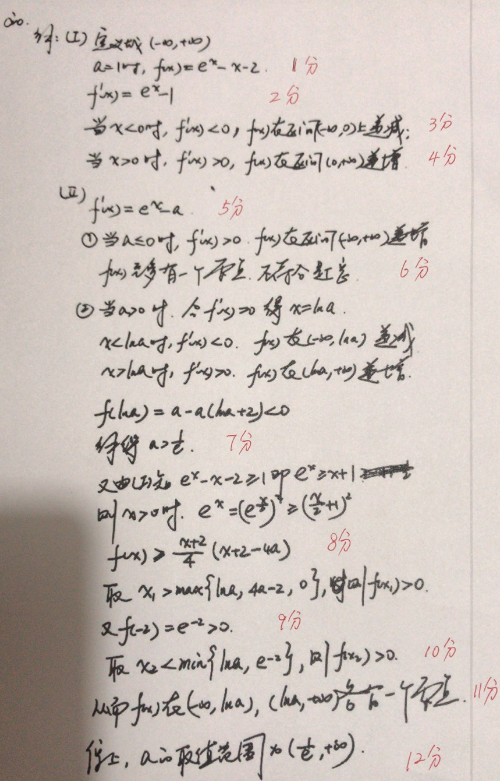 20.
解:(Ⅰ) 定义域(-∞,+∞)
a=1时, f(x)=e^x-x-2. 1分
f'(x)=e^x-1 2分
当x<0时, f'(x)<0, f(x)在区间(-∞,0)上递减; 3分
当x>0时, f'(x)>0, f(x)在区间(0,+∞)递增. 4分
(Ⅱ)
f'(x)=e^x-a. 5分
①当a≤0时, f'(x)>0. f(x)在区间(-∞,+∞)递增
f(x)至多有一个零点. 不符合题意. 6分
②当a>0时. 令f'(x)=0得x=lna.
x<lna时, f'(x)<0. f(x)在(-∞,lna)递减
x>lna时, f'(x)>0. f(x)在(lna,+∞)递增.
f(lna)=a-a(lna+2)<0
解得a>1/e. 7分
又由(Ⅰ)知 e^x-x-2≥1即e^x≥x+1
则x>0时. e^x=(e^(x/2))^2≥(x/2+1)^2
f(x)≥(x+2)/4(x+2-4a) 8分
取x₁>max{lna,4a-2,0}, 则f(x₁)>0.
又f(-2)=e^-2>0. 9分
取x₂<min{lna,e-2}, 则f(x₂)>0. 10分
从而f(x)在(-∞,lna),(lna,+∞)各有一个零点. 11分
综上, a的取值范围为(1/e,+∞). 12分